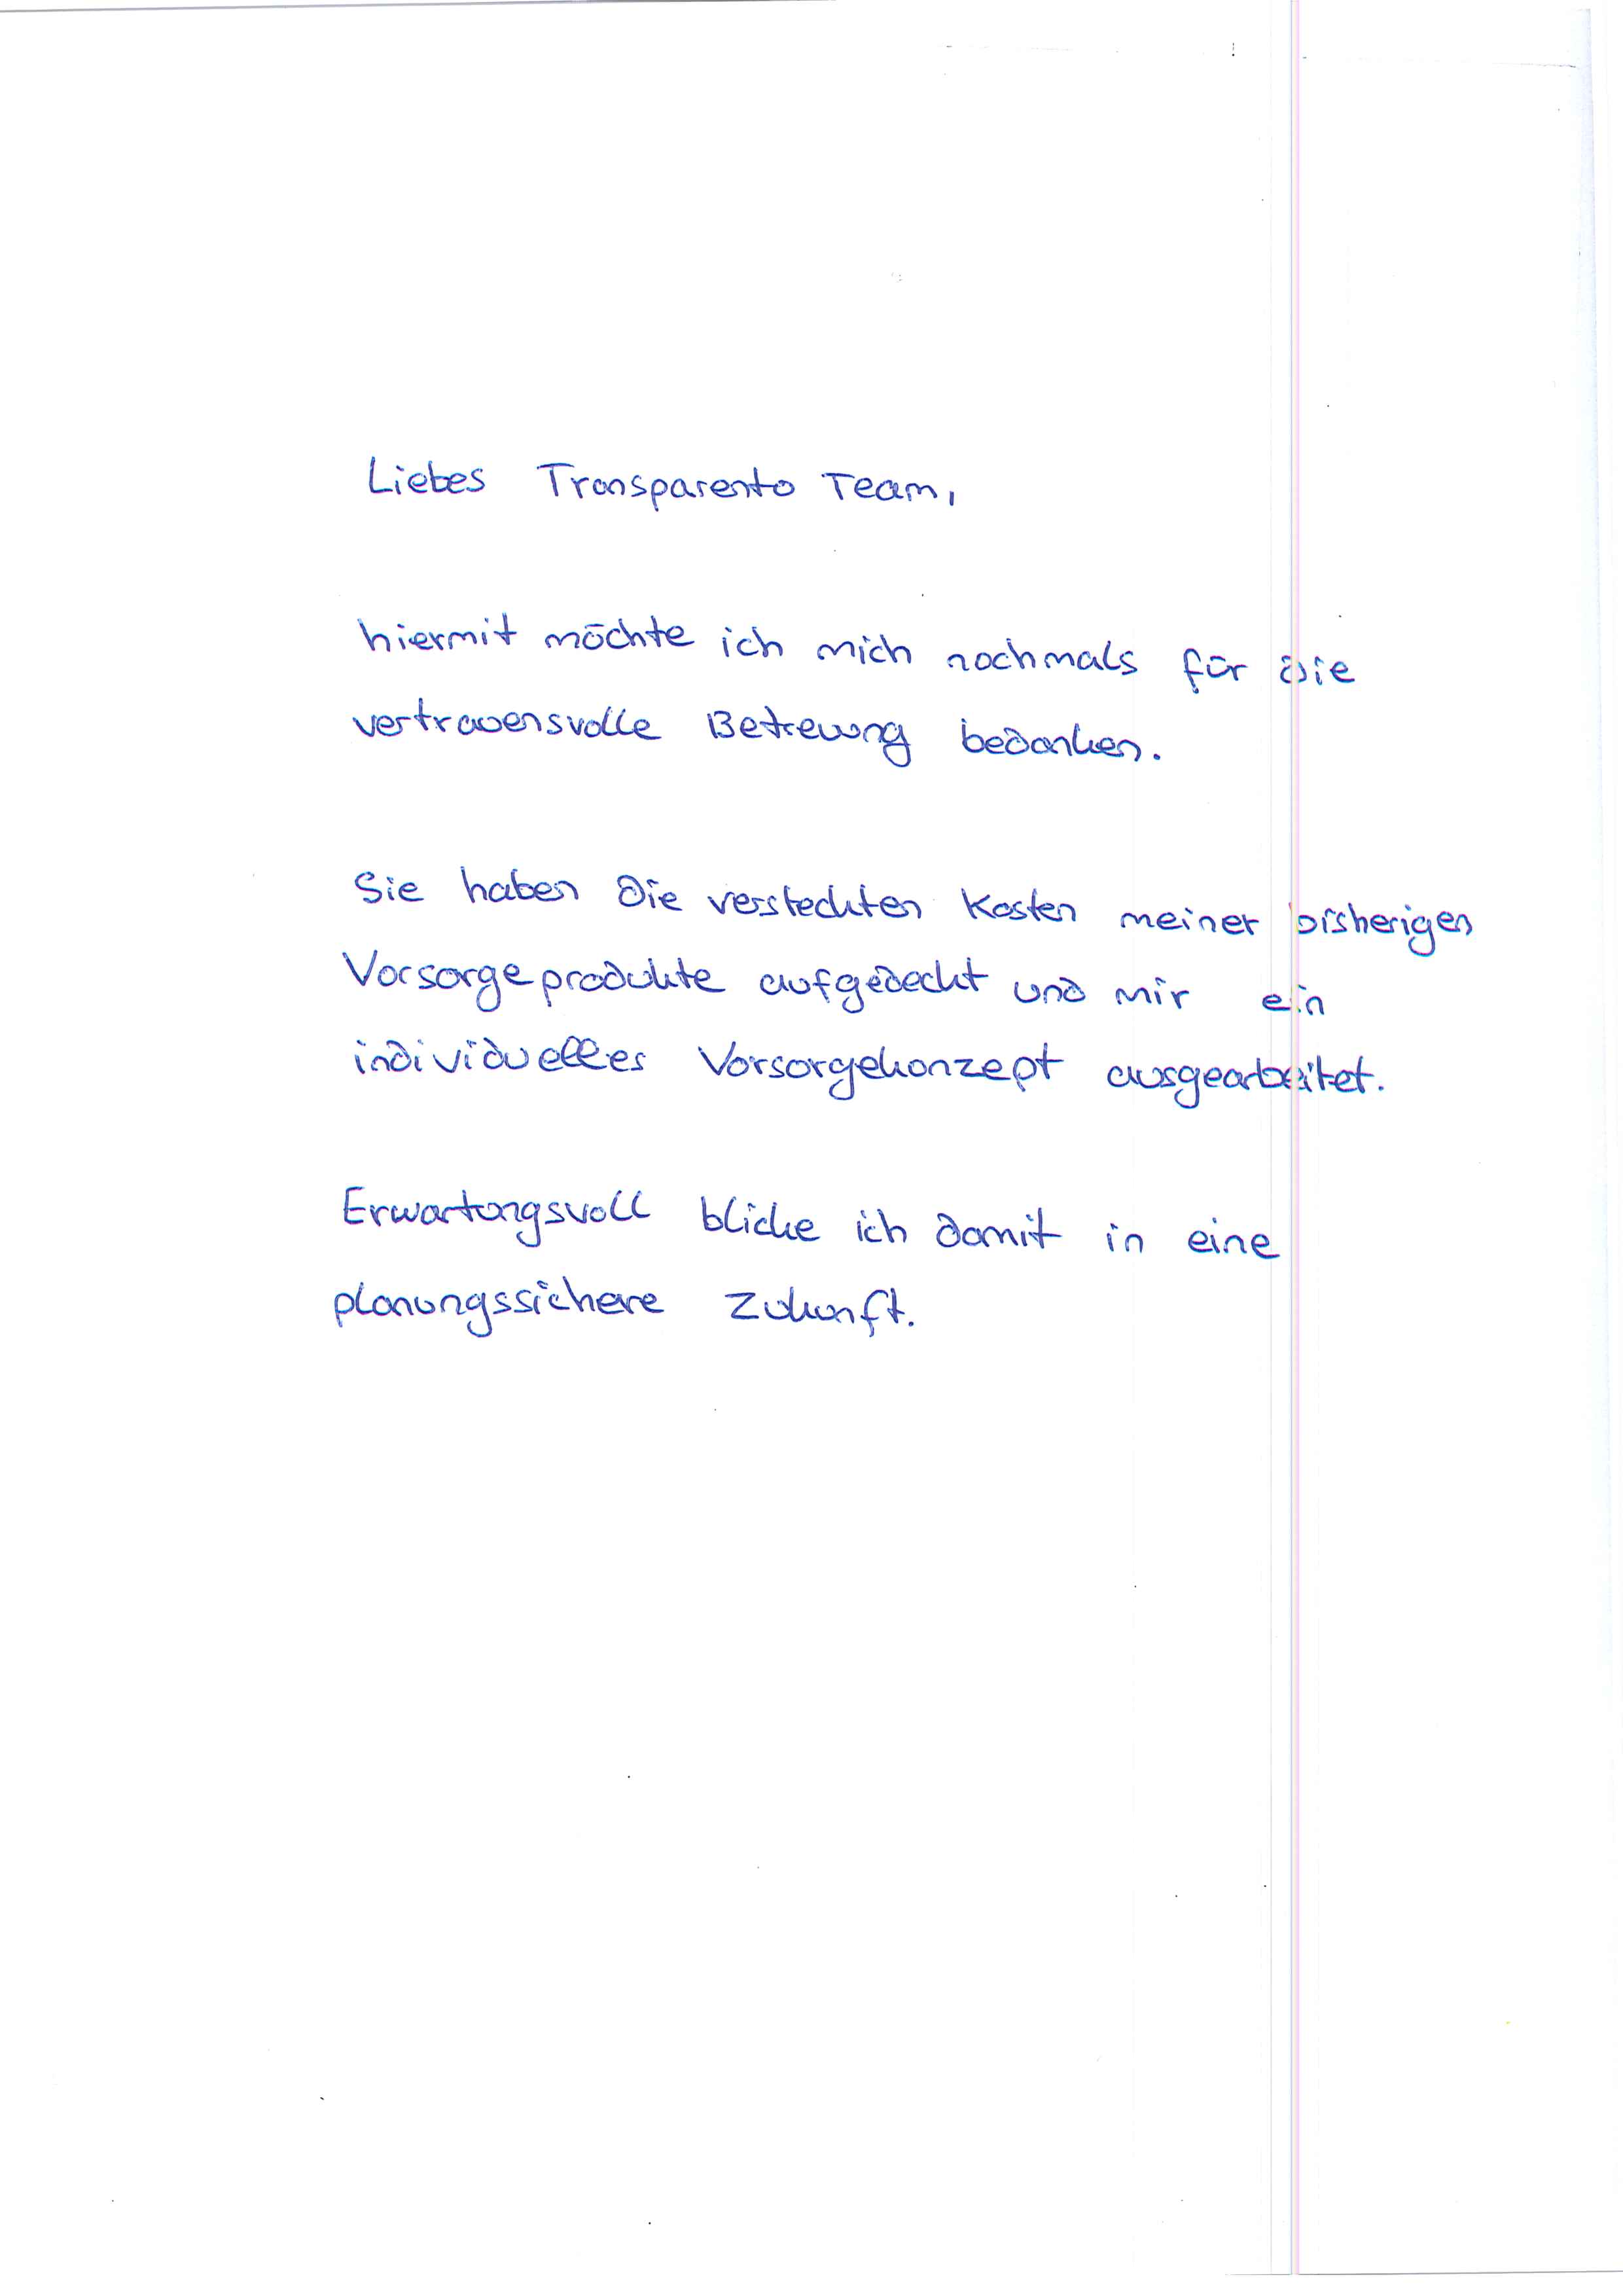 Liebes Transparento Team,
hiermit möchte ich mich nochmals für die
vertrauensvolle Betreuung bedanken.
Sie haben die versteckten Kosten meiner bisherigen
Vorsorgeprodukte aufgedeckt und mir ein
individuelles Vorsorgekonzept ausgearbeitet.
Erwartungsvoll blicke ich damit in eine
planungssichere Zukunft.